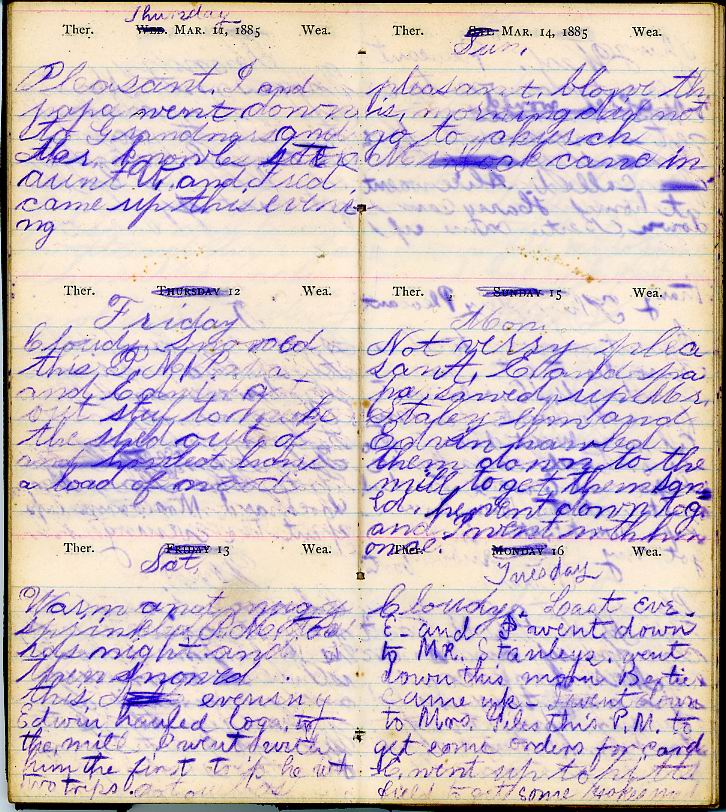 Thursday
Ther. WED. MAR. 11, 1885 Wea.
Pleasant. I and
papa went down
to Grandmas and
Mar Knowles
aunt V. and Fred
came up this eveni
ng
Ther. THURSDAY 12 Wea.
Friday
Cloudy Snowed
this P.M. Papa
and Edwin got
out stuf to make
the sled out of
and hauled home
a load of wood
Ther. FRIDAY 13 Wea.
Sat.
Warm and mugy
sprinkled
has night and
then snowed
this evening
Edwin hauled logs to
the mill I went with
him the first trip he wt
two trips.
Ther. SAT. MAR. 14, 1885 Wea.
Sun.
pleasant, blows th
is, morning did not
go to church
came in
Ther. SUNDAY 15 Wea.
Mon.
Not verry plea
sant. E and pa
pa, sawed up Mr.
Staley elm and
Edwin hauled
them down to the
mill to get them saw
ed, he went down tog
and I went with him
once.
Ther. MONDAY 16 Wea.
Tuesday
Cloudy. Last eve-
E- and I went down
to MR. Stanleys. went
down this morn Bertie
came up - I went down
to Mrs. Giles this P.M. to
get some orders for card
E. went up to pitts
field to get some